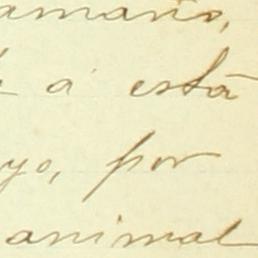 amaño,
á está
yo, por
animal